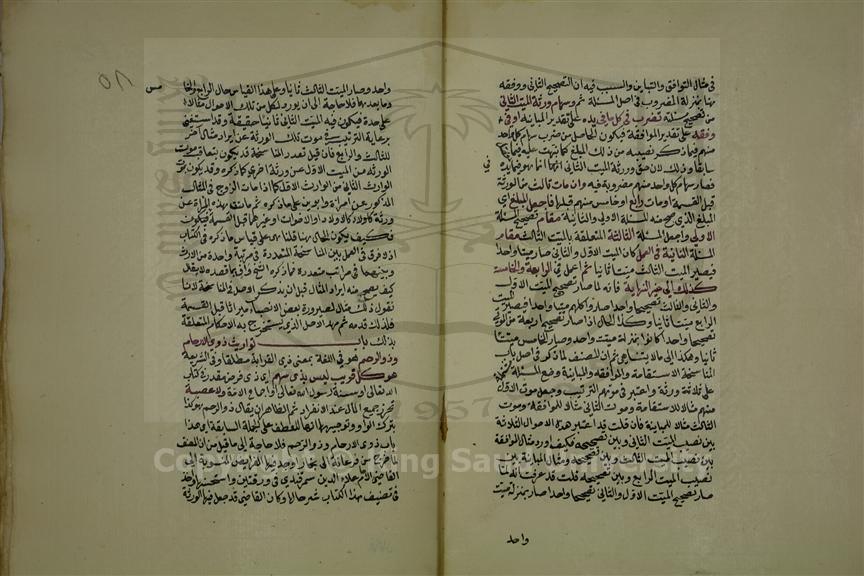 في مثال التوافق والتباين والسبب فيه ان التصحيح الثاني ووفقه
هنا بمنزلة المضروب في اصل المسئلة ثم وسهام ورثة الميت الثاني
من تصحيح مسئلته تضرب في كل ما في يده على تقدير المباينة او في
وفقه على تقدير الموافقة فيكون الحاصل من ضرب سهام كل واحد
منهم فيما ذكر نصيبه من ذلك المبلغ كما نبهت عليه فيما
سابقا وذلك لان حق ورثة الميت الثاني انما هو فيما في يده
فصار سهام كل واحد منهم مضروبة فيه وان مات ثالث من الورثة
قبل القسمة او مات رابع او خامس منهم قبلها فاجعل المبلغ اي
المبلغ الذي صحت منه المسئلة الاولى والثانية مقام تصحيح المسئلة
الاولى واجعل المسئلة الثالثة المتعلقة بالميت الثالث مقام
المسئلة الثانية في العمل كان الميت الاول والثاني صار ميتا واحدا
فيصير الميت الثالث ميتا ثانيا ثم اعمل في الرابعة والخامسة
كذلك الى غير النهاية فانه لما صار تصحيح الميت الاول
والثاني والثالث تصحيحا واحدا صاروا كلهم ميتا واحدا فيصير الميت
الرابع ميتا ثانيا وكذا الحال اذا صار تصحيح اربعة من الموتى
تصحيحا واحدا كانوا بمنزلة ميت واحد وصار الخامس ميتا
ثانيا وهكذا الى ما لا يتناهى ثم ان المصنف لما ذكر في اصل باب
المناسخة الاستقامة والموافقة والمباينة وضع المسئلة
على ثلاثة ورثة واعتبر في موتهم الترتيب وجعل موت الاول
منهم مثالا للاستقامة وموت الثاني مثالا للموافقة وموت
الثالث مثالا للمباينة فان قلت قد اعتبر هذه الاحوال الثلاثة
بين نصيب الميت الثاني وبين تصحيحه فكيف اورد مثال الموافقة
بين نصيب الميت الثالث وبين تصحيحه ومثال المباينة بين
نصيب الميت الرابع وبين تصحيحه قلت قد عرفت انه لما
صار تصحيح الميت الاول والثاني تصحيحا واحدا صار بمنزلة ميت
واحد
٥٨
واحد وصار الميت الثالث ثانيا وعلى هذا القياس حال الرابع والخامس
وما بعدهما فلا حاجة الى ان يورد لكل من تلك الاحوال مثالا
على حدة فيكون فيه الميت الثاني ثانيا حقيقة وقد استغنى
برعاية الترتيب في موت تلك الورثة عن ايراد مثال آخر
للثالث والرابع فان قيل تعدد المناسخة قد يكون بتعاقب موت
الورثة من الميت الاول عن ورثة اخرى كما ذكره وقد يكون بموت
الوارث الثاني من الوارث الاول كما اذا مات الزوج في المثال
المذكور عن امرأة وابوين على ما ذكره ثم ماتت هذه المرأة عن
ورثة كاولاد كالاولاد او الاخوات او غيرهما قبل القسمة فيكون
فكيف يكون الحال هنا قلنا هي على قياس ما ذكره في الكتاب
اذ لا فرق في العمل بين المناسخة المتعددة في مرتبة واحدة من الارث
وبينهما في مراتب متعددة فما ذكره الشيخ واف بما قصده لا يقال
كيف يصح منه ايراد المثال قبل ان يذكر الاصل في المناسخة لانا
نقول ذلك مثال لصيرورة بعض الانصباء ميراثا قبل القسمة
فلذلك قدمه ثم مهد الاصل الذي يستخرج به الاحكام المتعلقة
بذلك باب توارث ذوي الارحام
وذو الرحم هو في اللغة بمعنى ذي القرابة مطلقا وفي الشريعة
هو كل قريب ليس بذي سهم اي ذي فرض مقدر في كتاب
الله تعالى او سنة رسول الله تعالى او اجماع الامة ولا عصبة
تحرز جميع المال عند الانفراد ثم الظاهر ان يقال ذو الرحم هو كذا
بترك الواو وتوجيهها انها للعطف على الجملة السابقة اي هذا
باب ذوي الارحام وذو الرحم فلا حاجة الى ما قيل من ان المصنف
لما خرج من فرغانة الى بخارا وجد فيها الفرايض المنسوبة الى
القاضي الامام علاء الدين سمرقندي في ورقتين واستحسنها واخذ
في تصنيف هذا الكتاب شرحا لها وكان القاضي قد جعل فيها الورثة